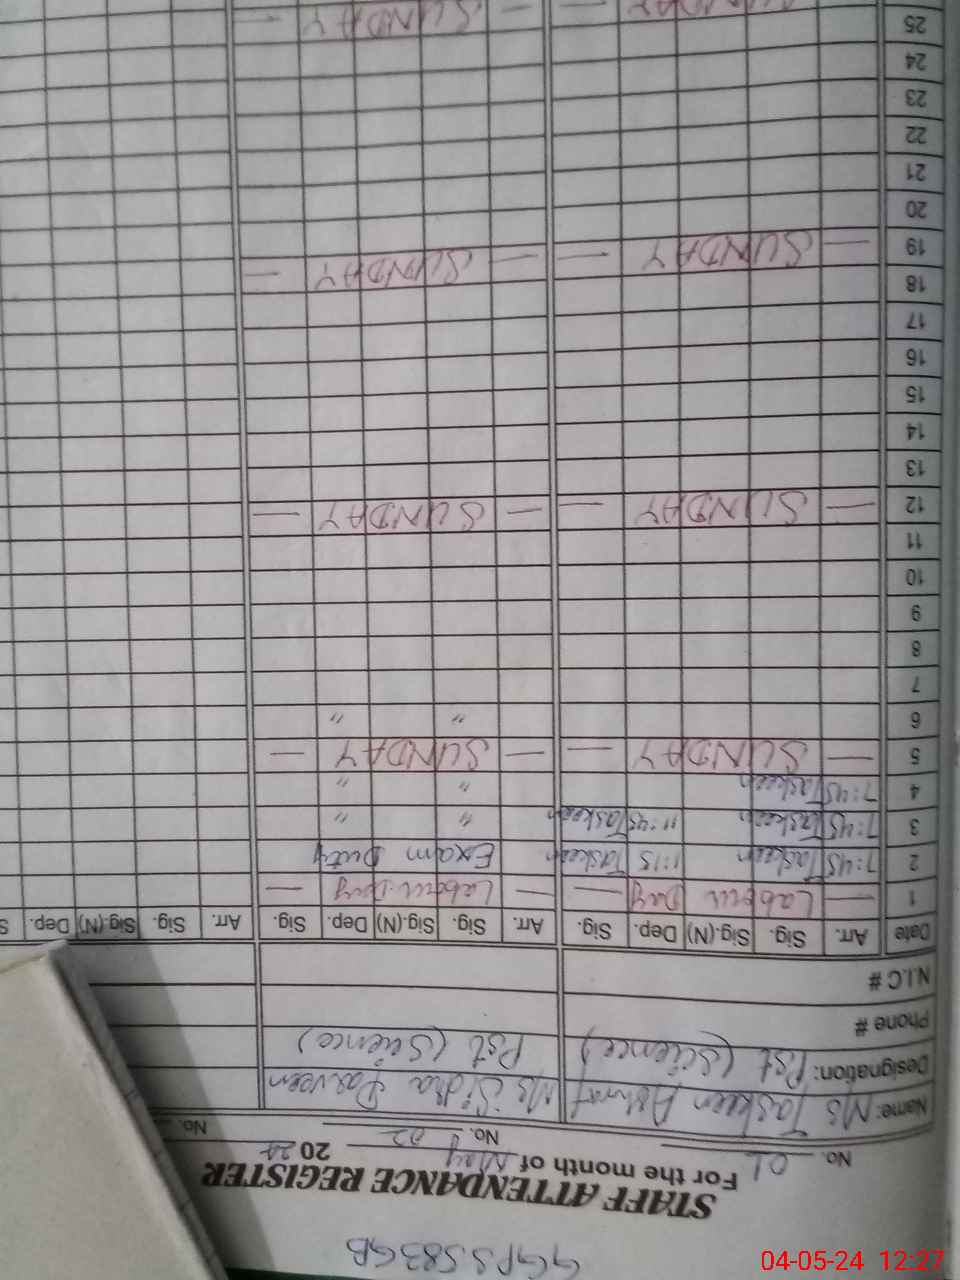 GGPS 583 GB
STAFF ATTENDANCE REGISTER
For the month of May 2024
No. 01 No. 02 No.
Name: Ms Taskeen Ashraf Ms Sidra Parveen
Designation: Pst (Science) Pst (Science)
Phone #
N.I.C #
Date Arr. Sig. Sig.(N) Dep. Sig. Arr. Sig. Sig.(N) Dep. Sig. Arr. Sig. Sig.(N) Dep. S
1 — Labour Day — — Labour Day —
2 7:45 Taskeen 1:15 Taskeen Exam Duty
3 7:45 Taskeen 11:45 Taskeen " "
4 7:45 Taskeen " "
5 — SUNDAY — — SUNDAY —
6 " "
7
8
9
10
11
12 — SUNDAY — — SUNDAY —
13
14
15
16
17
18
19 — SUNDAY — — SUNDAY —
20
21
22
23
24
25
SUNDAY — SUNDAY —
04-05-24 12:27